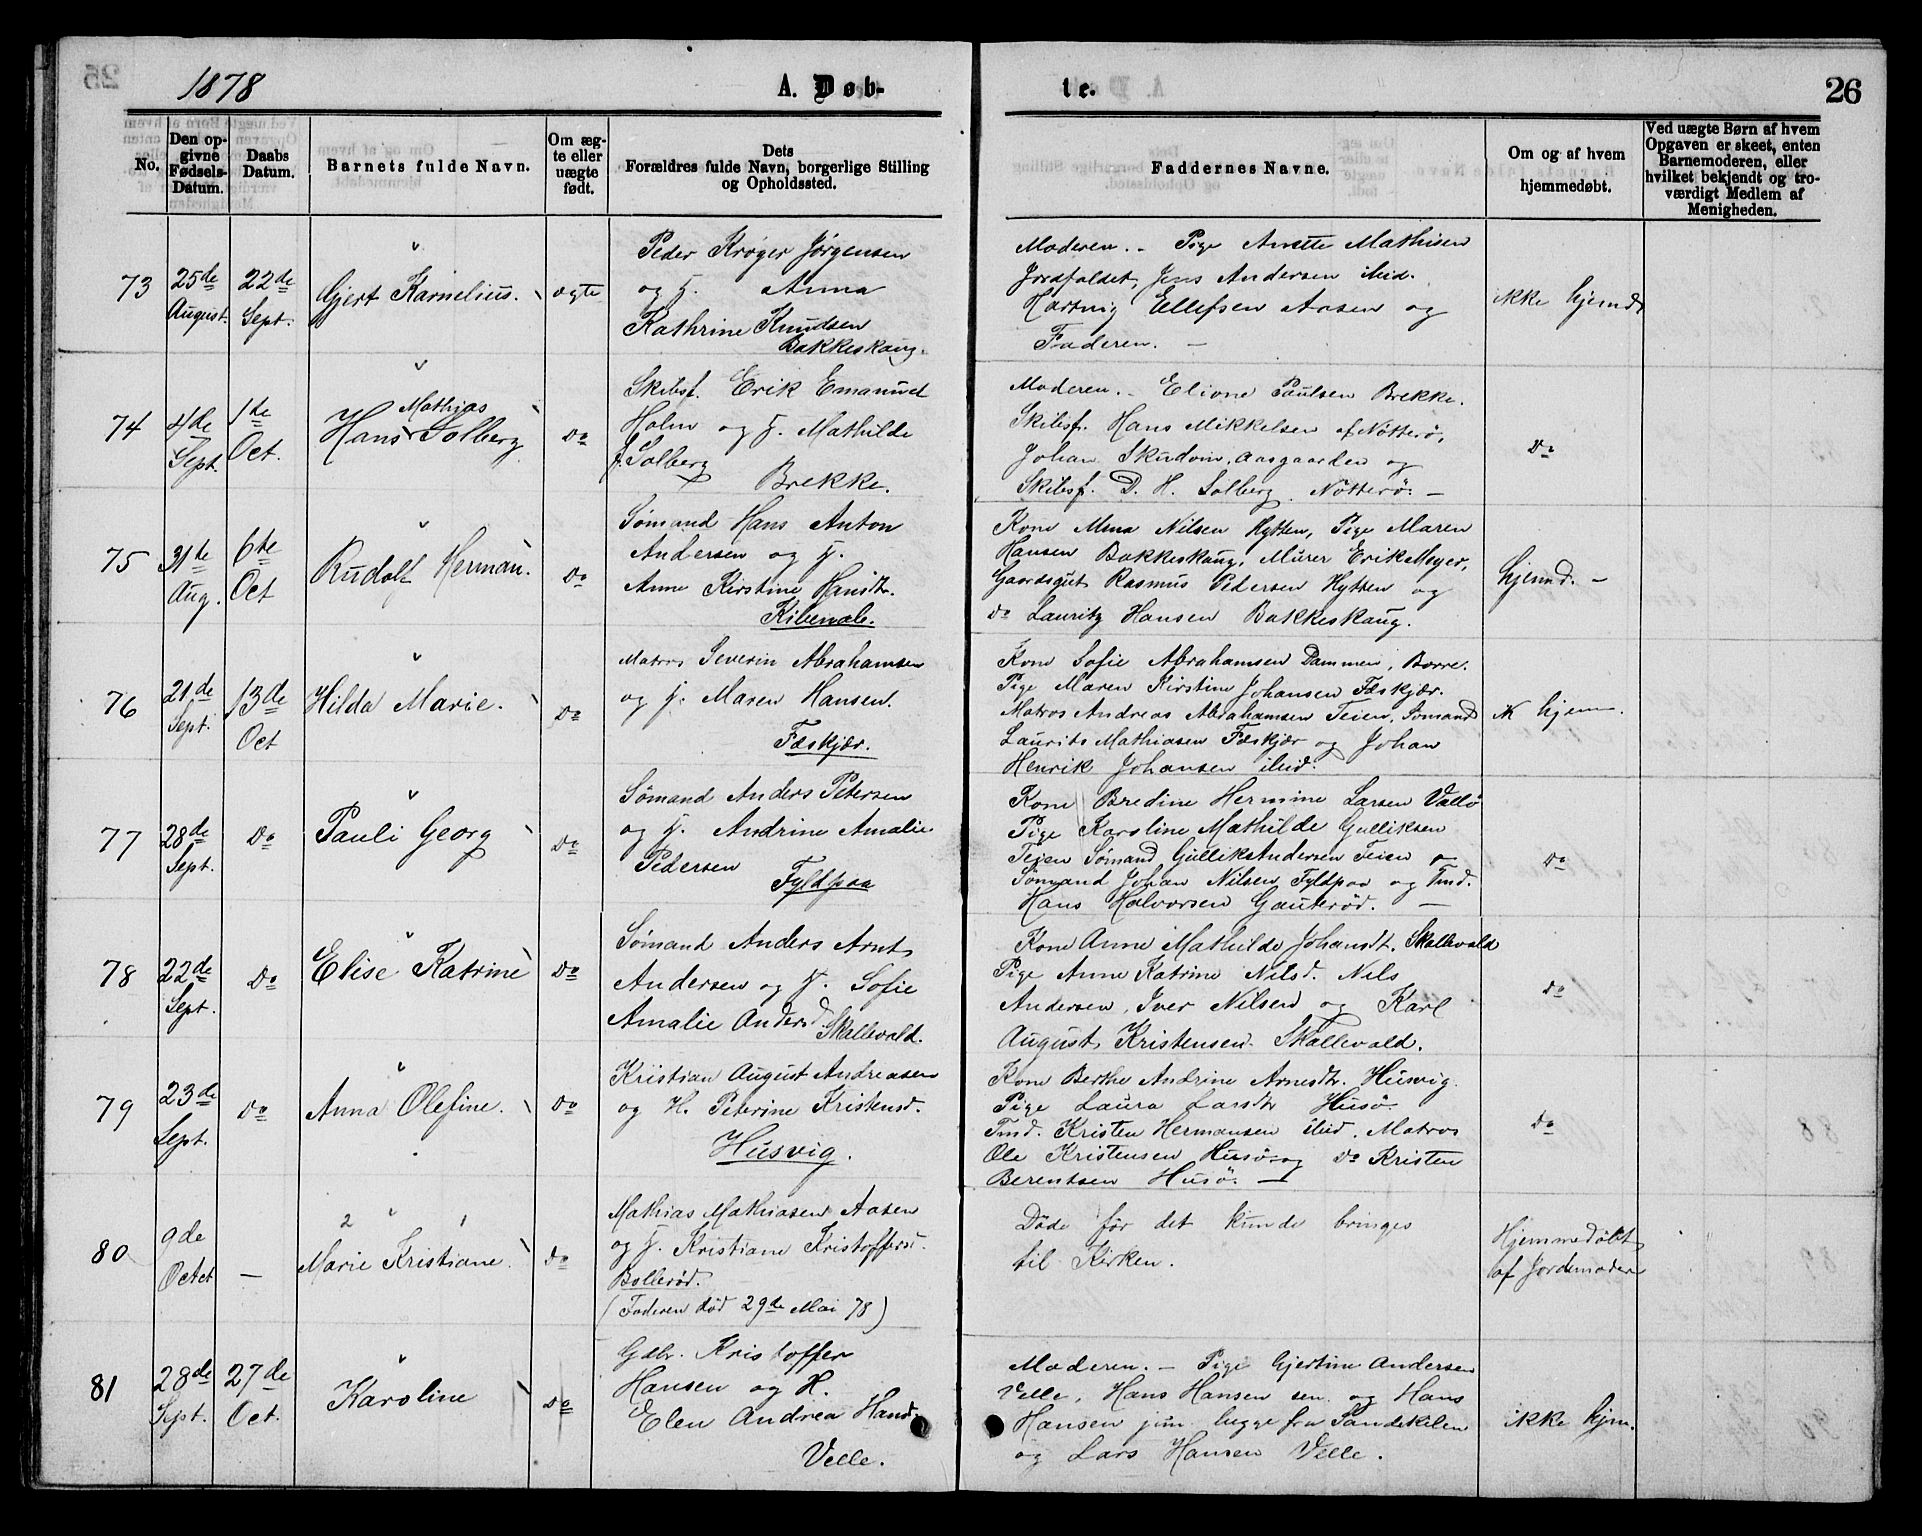 1878
A. Døb-
te.
26
No.
Den op-
givne
Fødsels-
Datum.
Daabs
Datum.
Barnets fulde Navn.
Om æg-
te eller
uægte
født.
Dets
Forældres fulde Navn, borgerlige Stilling
og Opholdssted.
Faddernes Navne.
Om og af hvem
hjemmedøbt.
Ved uægte Børn af hvem
Opgaven er skeet, enten
Barnemoderen, eller
hvilket bekjendt og tro-
værdigt Medlem af
Menigheden.
73
25de
August.
22de
Sept.
Gjert Karnelius.
ægte
Peder Krøger Jørgensen
og H. Anna
Kathrine Knudsen
Bakkeskaug.
Moderen. - Pige Anette Mathisen
Jordfaldet, Jens Andersen ibid.
Hartvig Ellefsen Aasen og
Faderen. -
ikke hjemd
74
4de
Sept.
1de
Oct.
Mathias
Hans Solberg
Do
Skibsf. Erik Emanuel
Holm og H. Mathilde
f. Solberg
Brekke.
Moderen. - Elione Paulsen Brekke.
Skibsf. Hans Mikkelsen af Nøtterø,
Johan Skudvin, Aasgaarden og
Skibsf. D. H. Solberg. Nøtterø. -
Do
75
31te
Aug.
6te
Oct
Rudolf Herman.
Do
Sømand Hans Anton
Andersen og H.
Anne Kirstine Hansdtr.
Kilevale.
Kone Mina Nilsen Hytten, Pige Maren
Hansen Bakkeskaug, Murer Erik Meyer,
Gaardsgut Rasmus Pedersen Hytten og
Do Lauritz Hansen Bakkeskaug.
hjemmd. -
76
21de
Sept.
13de
Oct
Hilda Marie.
Do
Matros Severin Abrahamsen
og H. Maren Hansen.
Fæskjær.
Kone Sofie Abrahamsen Dammen, Borre.
Pige Maren Kirstine Johansen Fæskjær.
Matros Andreas Abrahamsen Teien, Sømand
Laurits Mathiasen Fæskjær og Johan
Henrik Johansen ibid.
ik hjem.
77
28de
Sept.
Do
Pauli Georg
Do
Sømand Anders Petersen
og H. Andrine Amalie
Pedersen
Fyldpaa
Kone Bredine Hermine Larsen Vallø
Pige Karoline Mathilde Gulliksen
Teien Sømand Gullik Andersen Teien
Sømand Johan Nilsen Fyldpaa og Tmd.
Hans Halvorsen Gauterød. -
Do
78
22de
Sept.
Do
Elise Katrine
Do
Sømand Anders Arnt
Andersen og H. Sofie
Amalie Andersd.
Skallevald.
Kone Anne Mathilde Johansdt. Skallevald
Pige Anne Katrine Nilsd. Nils
Andersen, Iver Nilsen og Karl
August Kristensen. Skallevald.
Do
79
23de
Sept.
Do
Anna Olefine.
Do
Kristian August Andreasen
og H. Peterine Kristensd.
Husvig.
Kone Berthe Andrine Arnesdtr. Husvig.
Pige Laura Larsdtr Husø
Tmd. Kristen Hermansen ibid. Matros
Ole Kristensen Husø og Do Kristen
Berentsen Husø. -
Do
80
9de
Octct
-
2 1
Marie Kristiane.
Do
Mathias Mathiasen Aasen
og H. Kristiane Kristoffers.
Bollerød.
(Faderen død 29de Mai 78)
Døde før det kunde bringes
til Kirken.
Hjemmedøbt
af Jordemoder
81
28de
Sept.
27de
Oct.
Karoline
Do
Gdbr. Kristoffer
Hansen og H.
Elen Andrea Hansd.
Velle.
Moderen. - Pige Gjertine Andersen
Velle, Hans Hansen sen. og Hans
Hansen jun. begge fra Sandekilen
og Lars Hansen Velle.
ikke hjem.